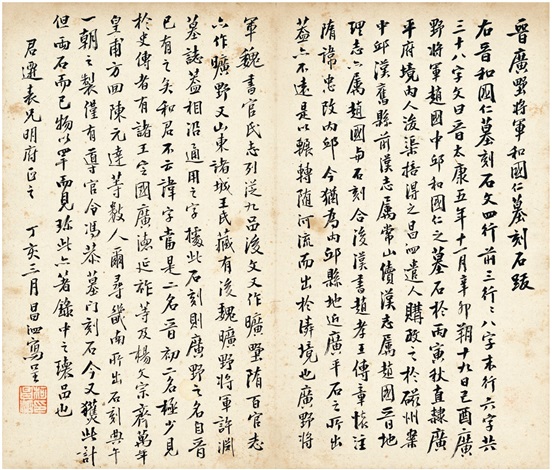 晉廣野將軍和國仁墓刻石跋
右晉和國仁墓刻石文四行前三行〻八字末行六字共
三十八字文曰晉太康五年十一月辛卯朔十九日己酉廣
野將軍趙國中邱和國仁之墓石於丙寅秋直隸廣
平府境內人浚渠掊得之昌泗遣人購致之於磁州案
中邱漢舊縣前漢志屬常山續漢志屬趙國晉地
理志亦屬趙國與石刻合後漢書趙孝王傳章懷注
隋諱忠改內邱今猶為內邱縣地近廣平石之所出
蓋亦不遠是以輾轉隨河流而出於鄰境也廣野將
軍魏書官氏志列從九品後文又作曠野隋百官志
亦作曠野又山東諸城王氏藏有後魏曠野將軍許淵
墓誌蓋相沿通用之字據此石刻則廣野之名自晉
已有之矣和君不云諱字當是二名晉初二名極少見
於史傳者有諸王定國廣德延祚等及楊文宗齊萬年
皇甫方回陳元達等數人爾尋畿南所出石刻典午
一朝之製僅有導官令馮恭墓門刻石今又獲此計
但兩石而已物以罕而見珍此亦著錄中之瓌品也
君遷表兄明府正之 丁亥三月昌泗寫呈